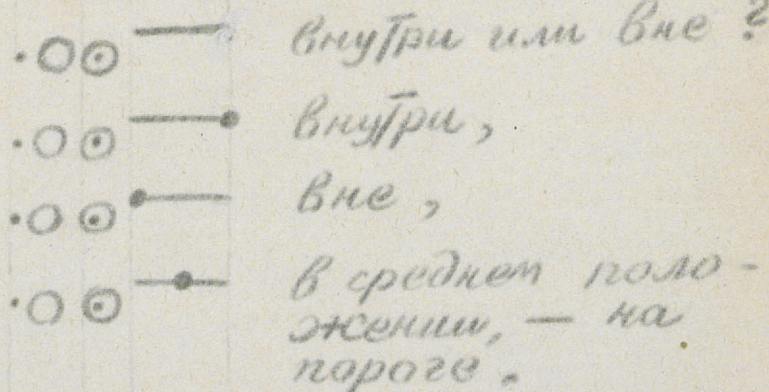 внутри или вне?
внутри,
вне,
в среднем поло-
жении, — на
пороге.